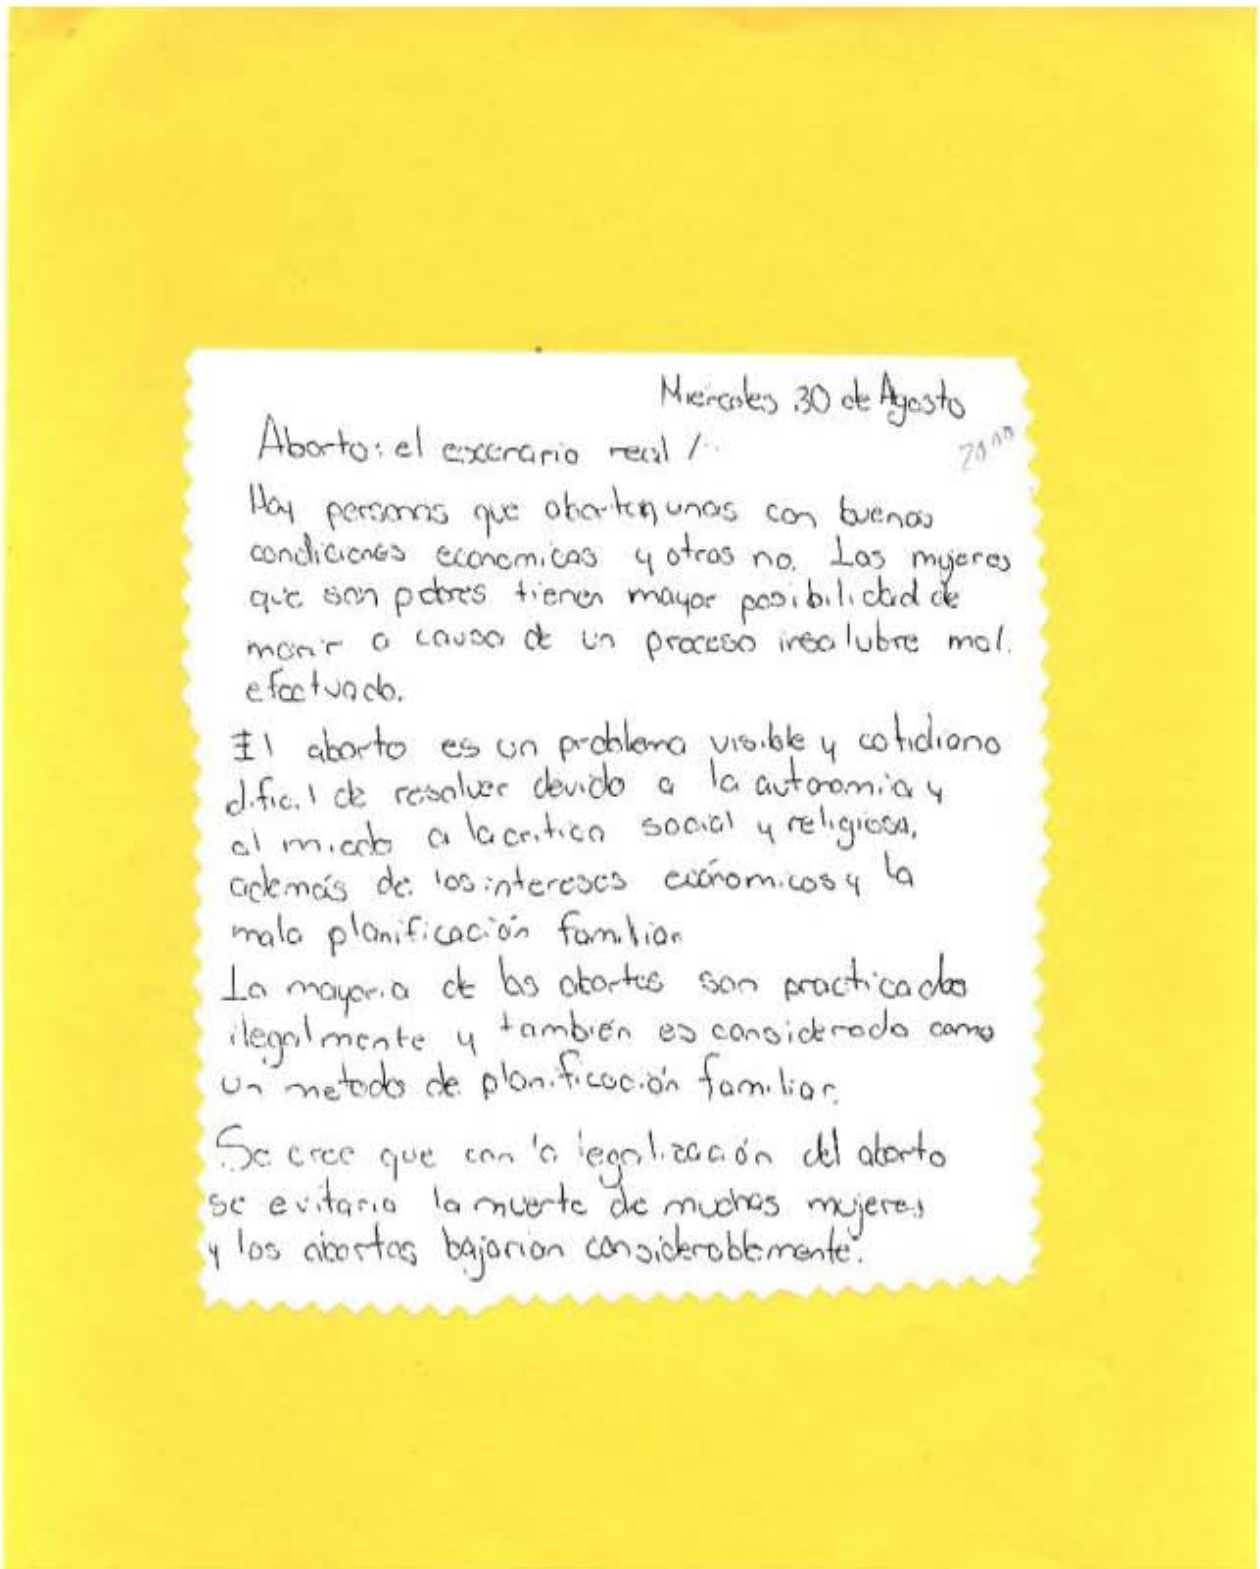 Miércoles 30 de Agosto
Aborto: el escenario real /
Hay personas que aborten unas con buenas
condiciones economicas y otras no. Las mujeres
que son pobres tienen mayor posibilidad de
morir a causa de un proceso insalubre mal
efectuado.
El aborto es un problema visible y cotidiano
dificil de resolver devido a la autonomia y
al miedo a la critica social y religiosa,
además de los intereses económicos y la
mala planificación familiar
La mayoria de los abortos son practicados
ilegalmente y también es considerado como
un metodo de planificación familiar.
Se cree que con la legalización del aborto
se evitaria la muerte de muchas mujeres
y los abortos bajarian considerablemente.